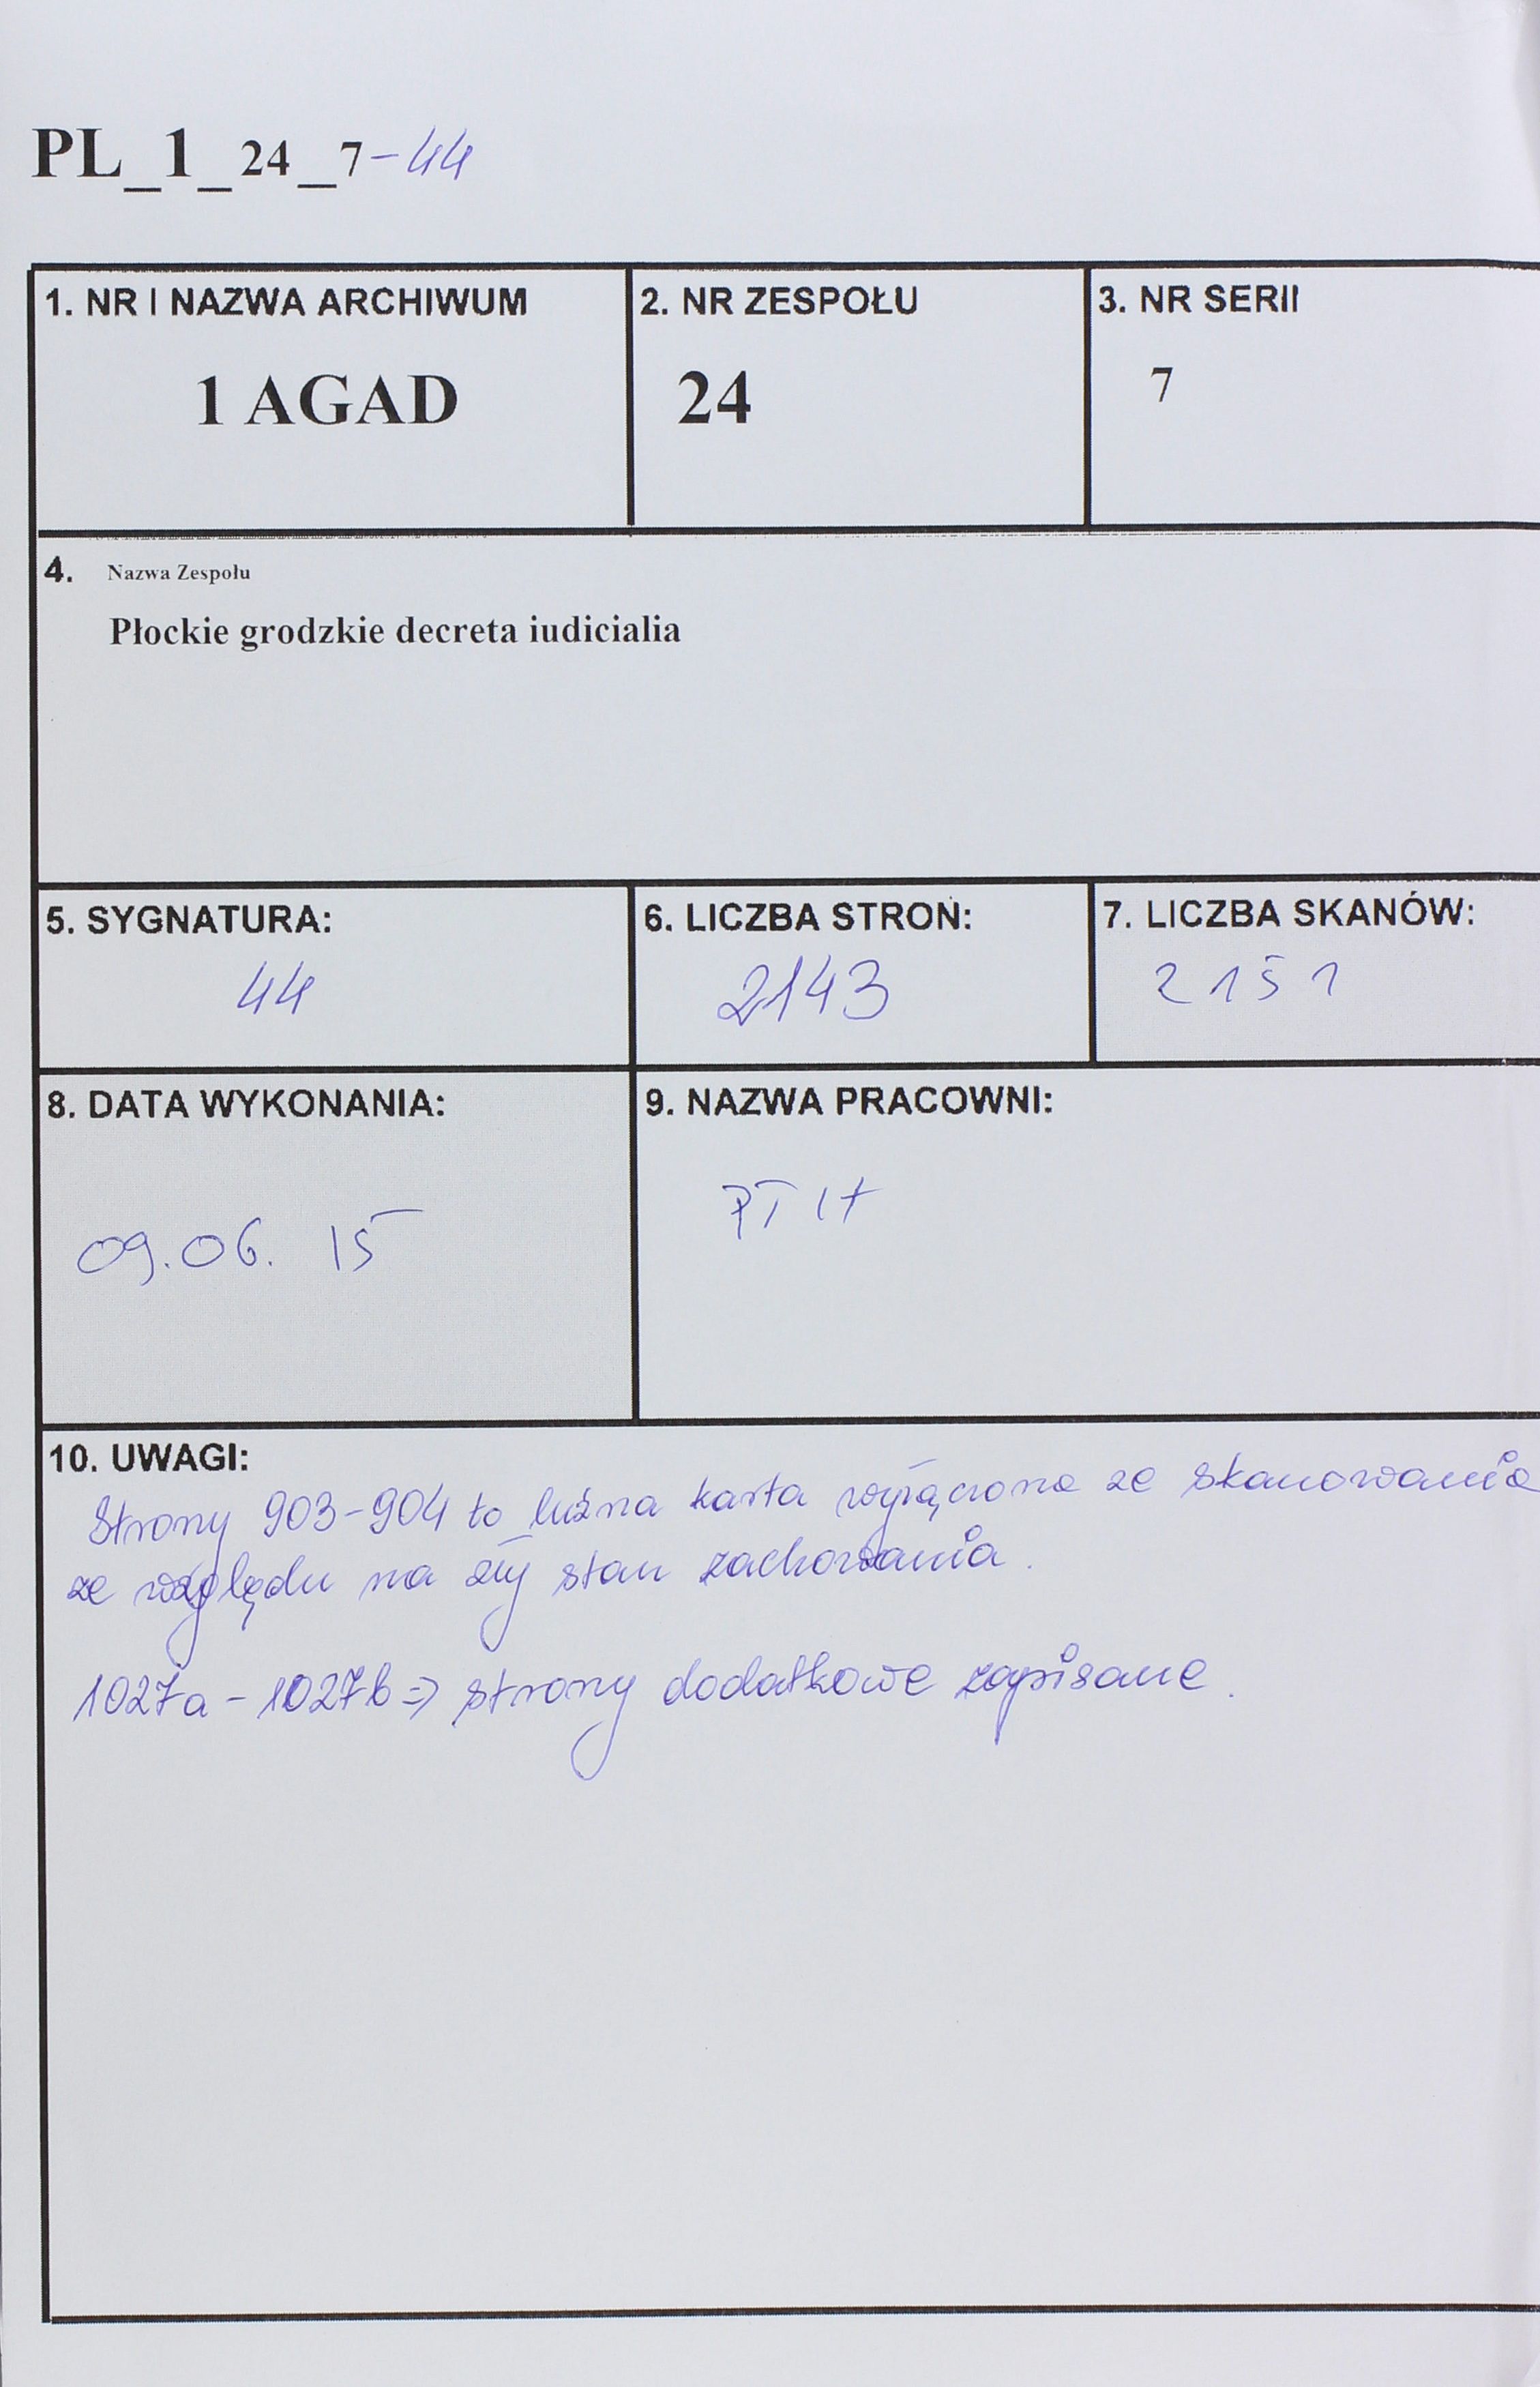 PL_1_24_7-44
1. NR I NAZWA ARCHIWUM
1 AGAD
2. NR ZESPOŁU
24
3. NR SERII
7
4. Nazwa Zespołu
Płockie grodzkie decreta iudicialia
5. SYGNATURA:
44
6. LICZBA STRON:
2143
7. LICZBA SKANÓW:
2151
8. DATA WYKONANIA:
09.06. 15
9. NAZWA PRACOWNI:
10. UWAGI:
Strony 903-904 to luźna karta wyłączona ze skanowania
ze względu na zły stan zachowania.
1027a - 1027b => strony dodatkowe zapisane.